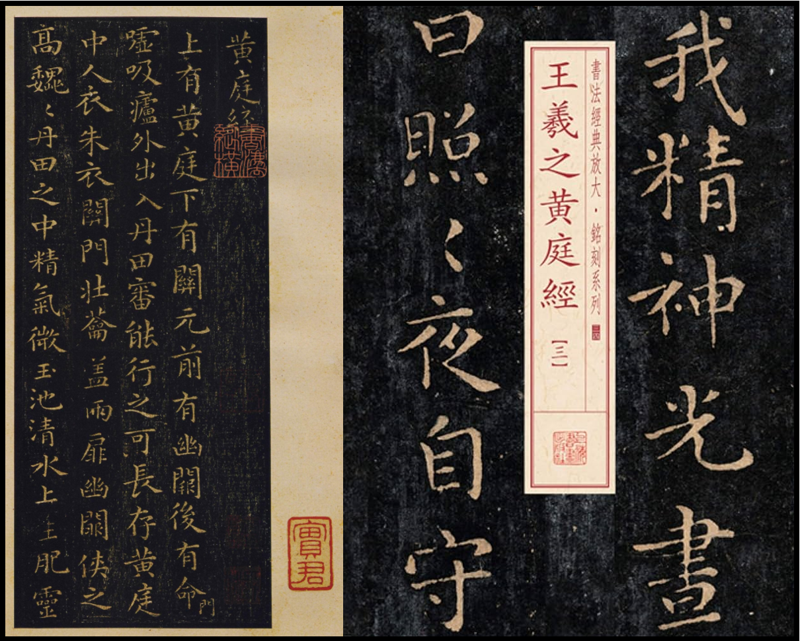 黃庭經
上有黃庭下有關元前有幽闕後有命門
噓吸廬外出入丹田審能行之可長存黃庭
中人衣朱衣關門壯蘥蓋兩扉幽闕俠之
高魏〻丹田之中精氣微玉池清水上生肥靈
我精神光晝
書法經典放大・銘刻系列
王羲之黃庭經【三】
日照〻夜自守